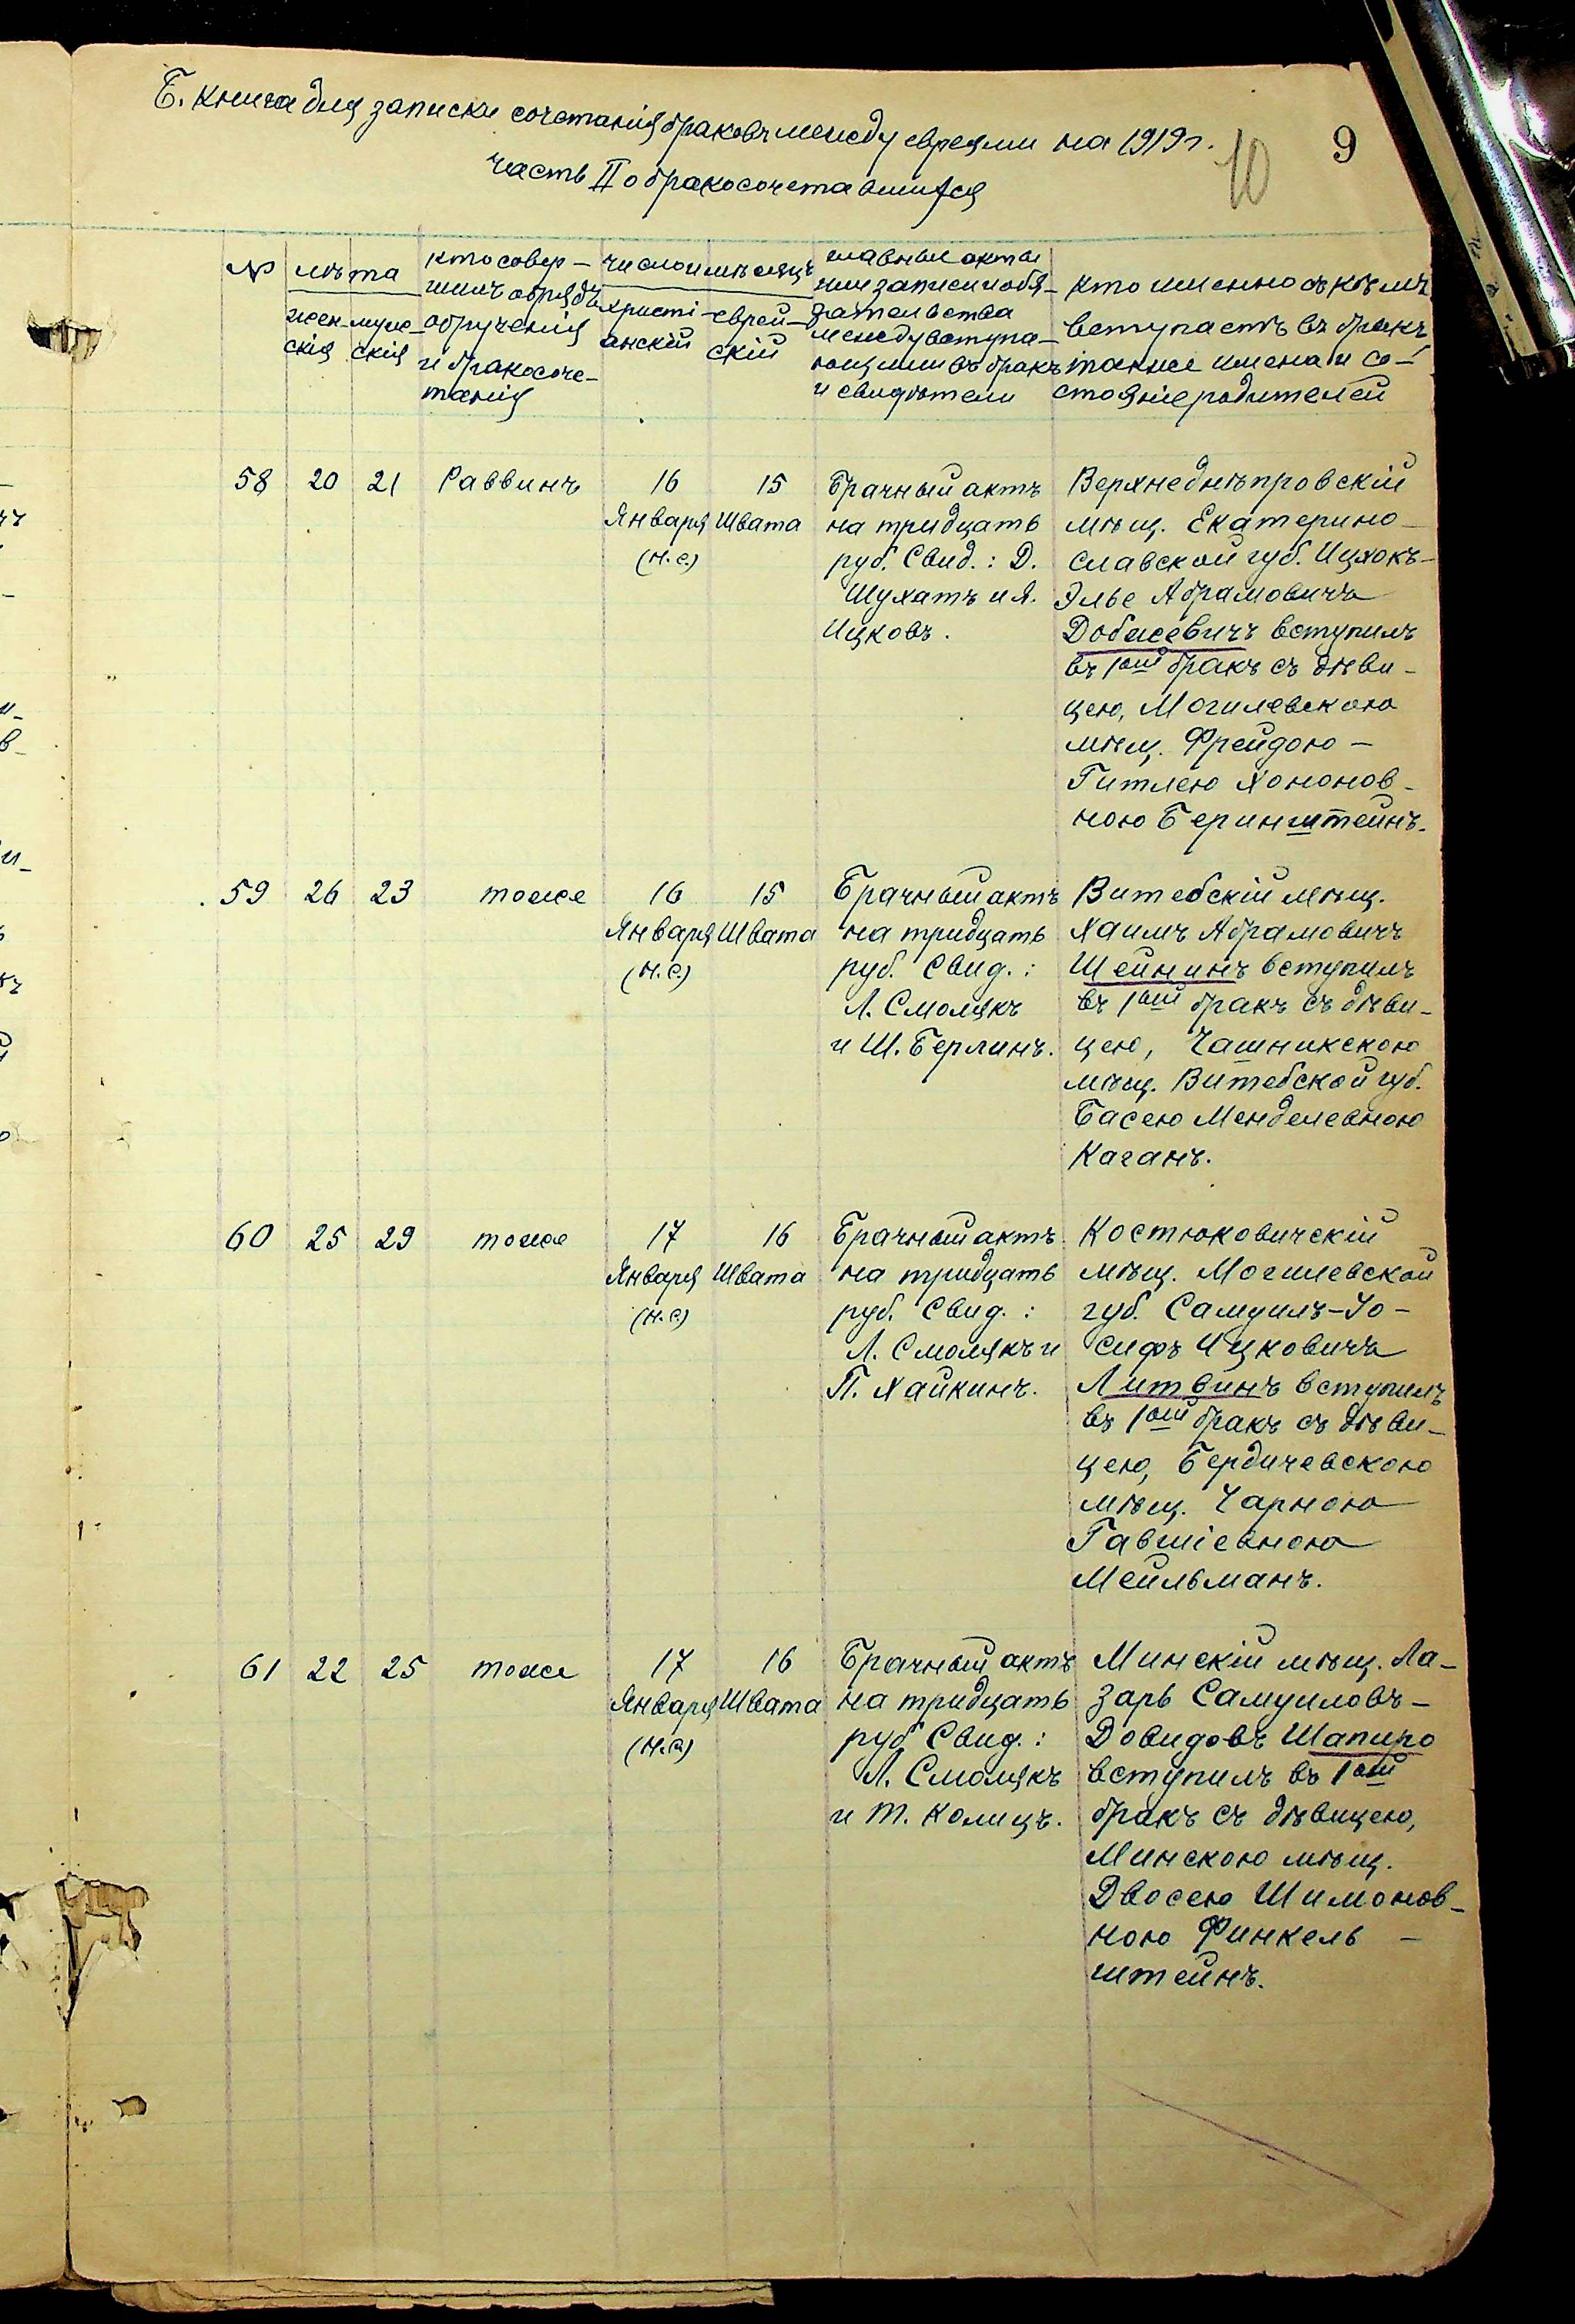 Б. Книга для записки сочетанія браковъ между евреями на 1919 г.
часть II о бракосочетавшихся
10
9
№
лѣта
жен-
скія
муж-
скія
кто совер-
шилъ обрядъ
обрученія
и бракосоче-
танія
число и мѣсяцъ
христі-
анскій
еврей-
скій
главные акты
или записи и обя-
зательства
между вступа-
ющими въ бракъ
и свидѣтели
кто именно съ кѣмъ
вступаетъ въ бракъ
также имена и со-
стояніе родителей
58
20
21
Раввинъ
16
Января
(н.с.)
15
Швата
Брачный актъ
на тридцать
руб. Свид.: Д.
Шухатъ и Я.
Ицковъ.
Верхнеднѣпровскій
мѣщ. Екатерино-
славской губ. Ицхокъ-
Элье Абрамовичъ
Добкевичъ вступилъ
въ 1ый бракъ съ дѣви-
цею, Могилевскою
мѣщ. Фрейдою-
Гитлею Хононов-
ною Беринштейнъ.
59
26
23
тоже
16
Января
(н.с.)
15
Швата
Брачный актъ
на тридцать
руб. Свид.:
Л. Смолякъ
и Ш. Берлинъ.
Витебскій мѣщ.
Хаимъ Абрамовичъ
Шейнинъ вступилъ
въ 1ый бракъ съ дѣви-
цею, Чашникскою
мѣщ. Витебской губ.
Басею Менделевною
Каганъ.
60
25
29
тоже
17
Января
(н.с.)
16
Швата
Брачный актъ
на тридцать
руб. Свид.:
Л. Смолякъ и
П. Хайкинъ.
Костюковичскій
мѣщ. Могилевской
губ. Самуилъ-Іо-
сифъ Ицковичъ
Литвинъ вступилъ
въ 1ый бракъ съ дѣви-
цею, Бердичевскою
мѣщ. Чарною
Гавшіевною
Мейльманъ.
61
22
25
тоже
17
Января
(н.с.)
16
Швата
Брачный актъ
на тридцать
руб Свид.:
Л. Смолякъ
и Т. Колицъ.
Минскій мѣщ. Ла-
зарь Самуиловъ-
Довидовъ Шапиро
вступилъ въ 1ый
бракъ съ дѣвицею,
Минскою мѣщ.
Двосею Шимонов-
ною Финкель-
штейнъ.